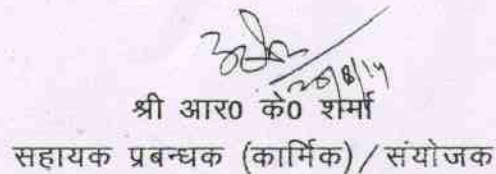 श्री आर0 के0 शर्मा
सहायक प्रबन्धक (कार्मिक) / संयोजक